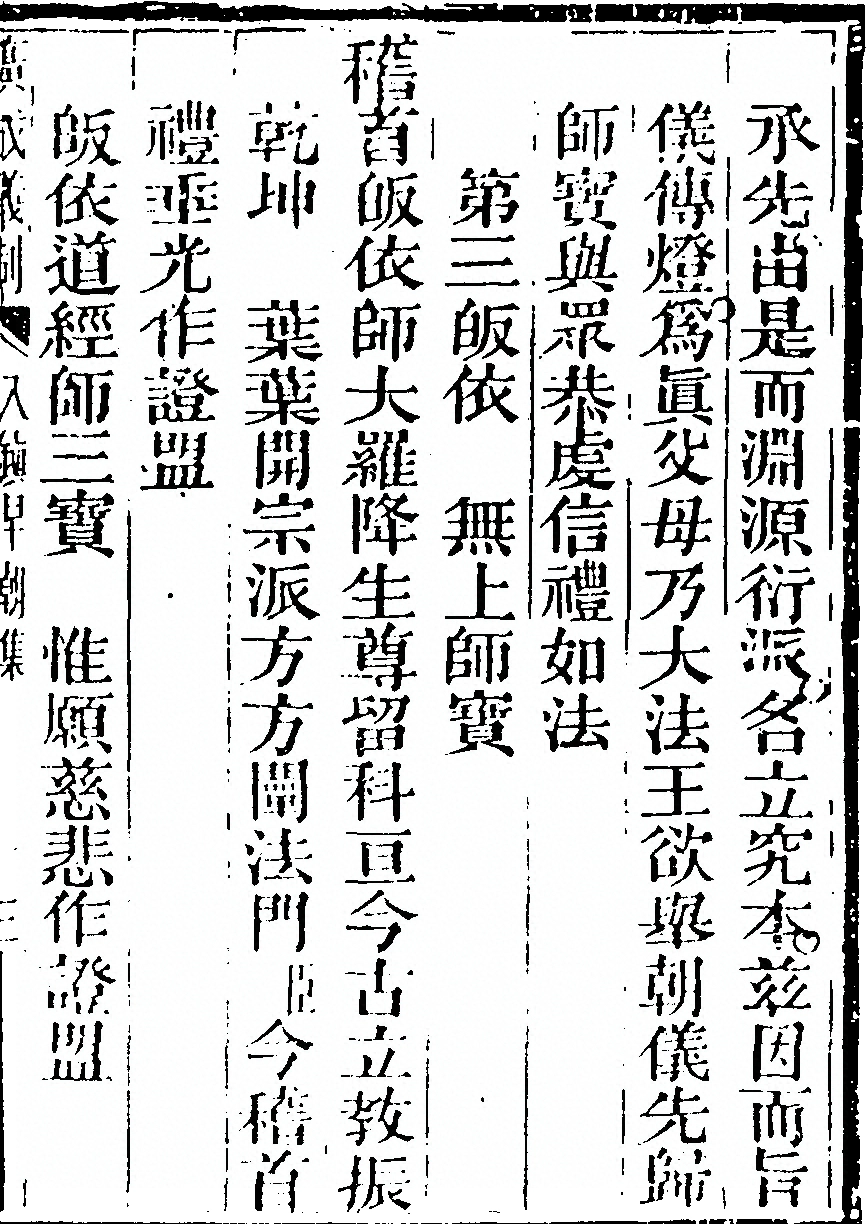 承先由是而淵源衍派各立究本兹因而旨
儀傳燈爲眞父母乃大法王欲舉朝儀先歸
師寶與眾恭虔信禮如法
第三皈依　無上師寶
稽首皈依師大羅降生尊留科亘今古立教振
乾坤　葉葉開宗派方方闡法門　臣今稽首
禮垂光作證盟
皈依道經師三寶　惟願慈悲作證盟
廣成儀制　早朝集　三